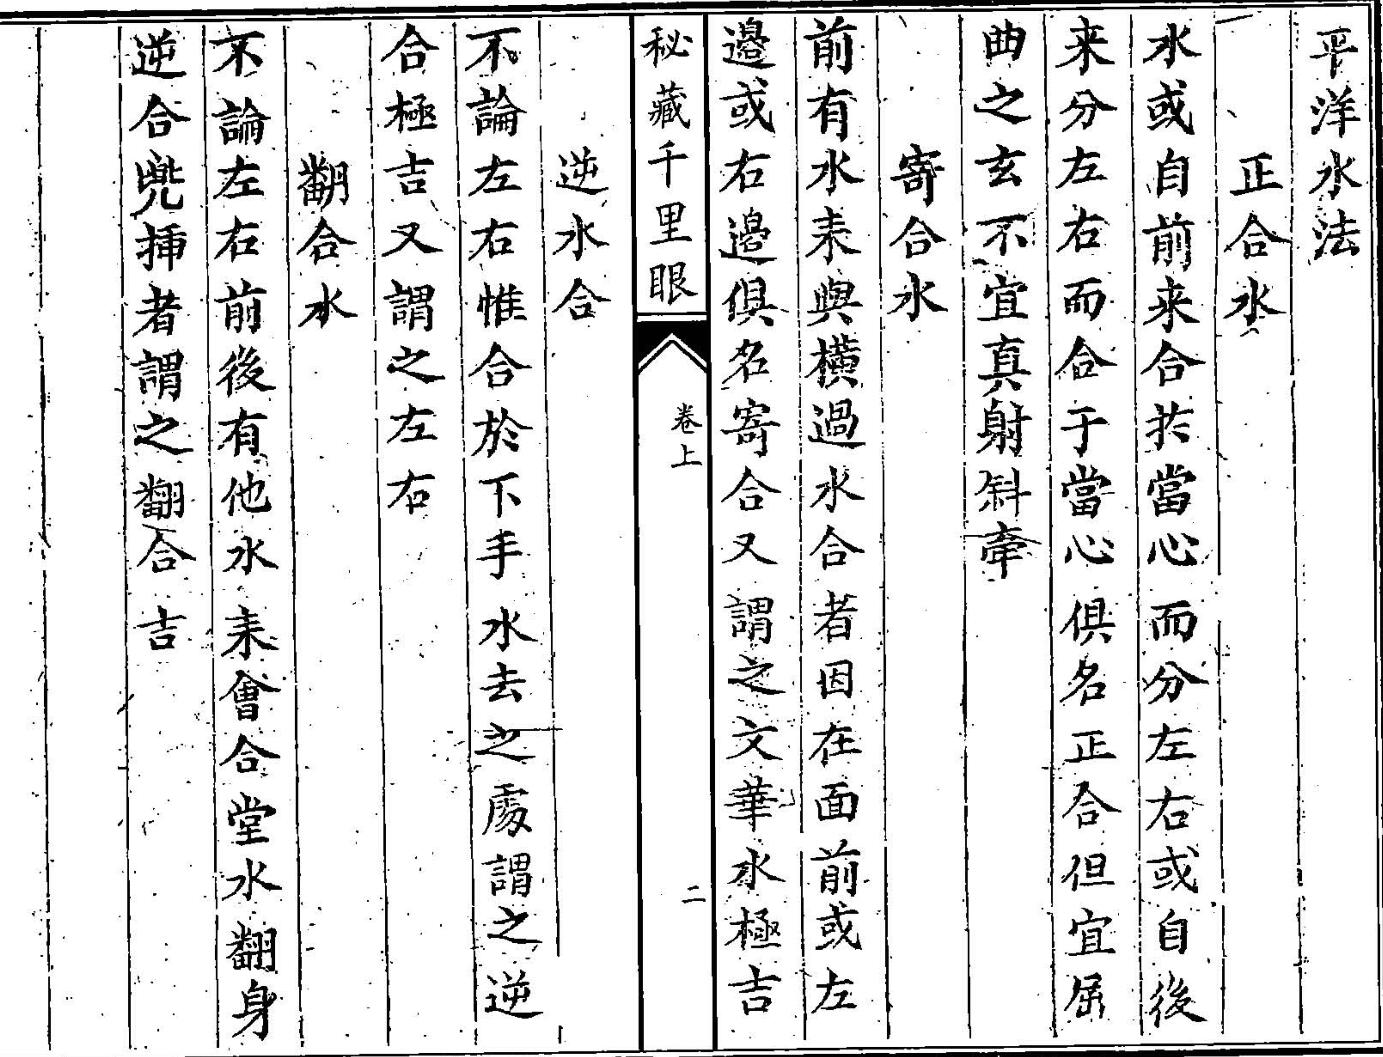 平洋水法
正合水
水或自前来合扵當心而分左右或自後
来分左右而合于當心俱名正合但宜屈
曲之玄不宜真射斜牽
寄合水
前有水来與橫過水合者因在面前或左
邉或右邉俱名寄合又謂之文華水極吉
秘藏千里眼
卷上
二
逆水合
不論左右惟合於下手水去之處謂之逆
合極吉又謂之左右
翻合水
不論左右前後有他水来會合堂水翻身
逆合兠揷者謂之翻合吉